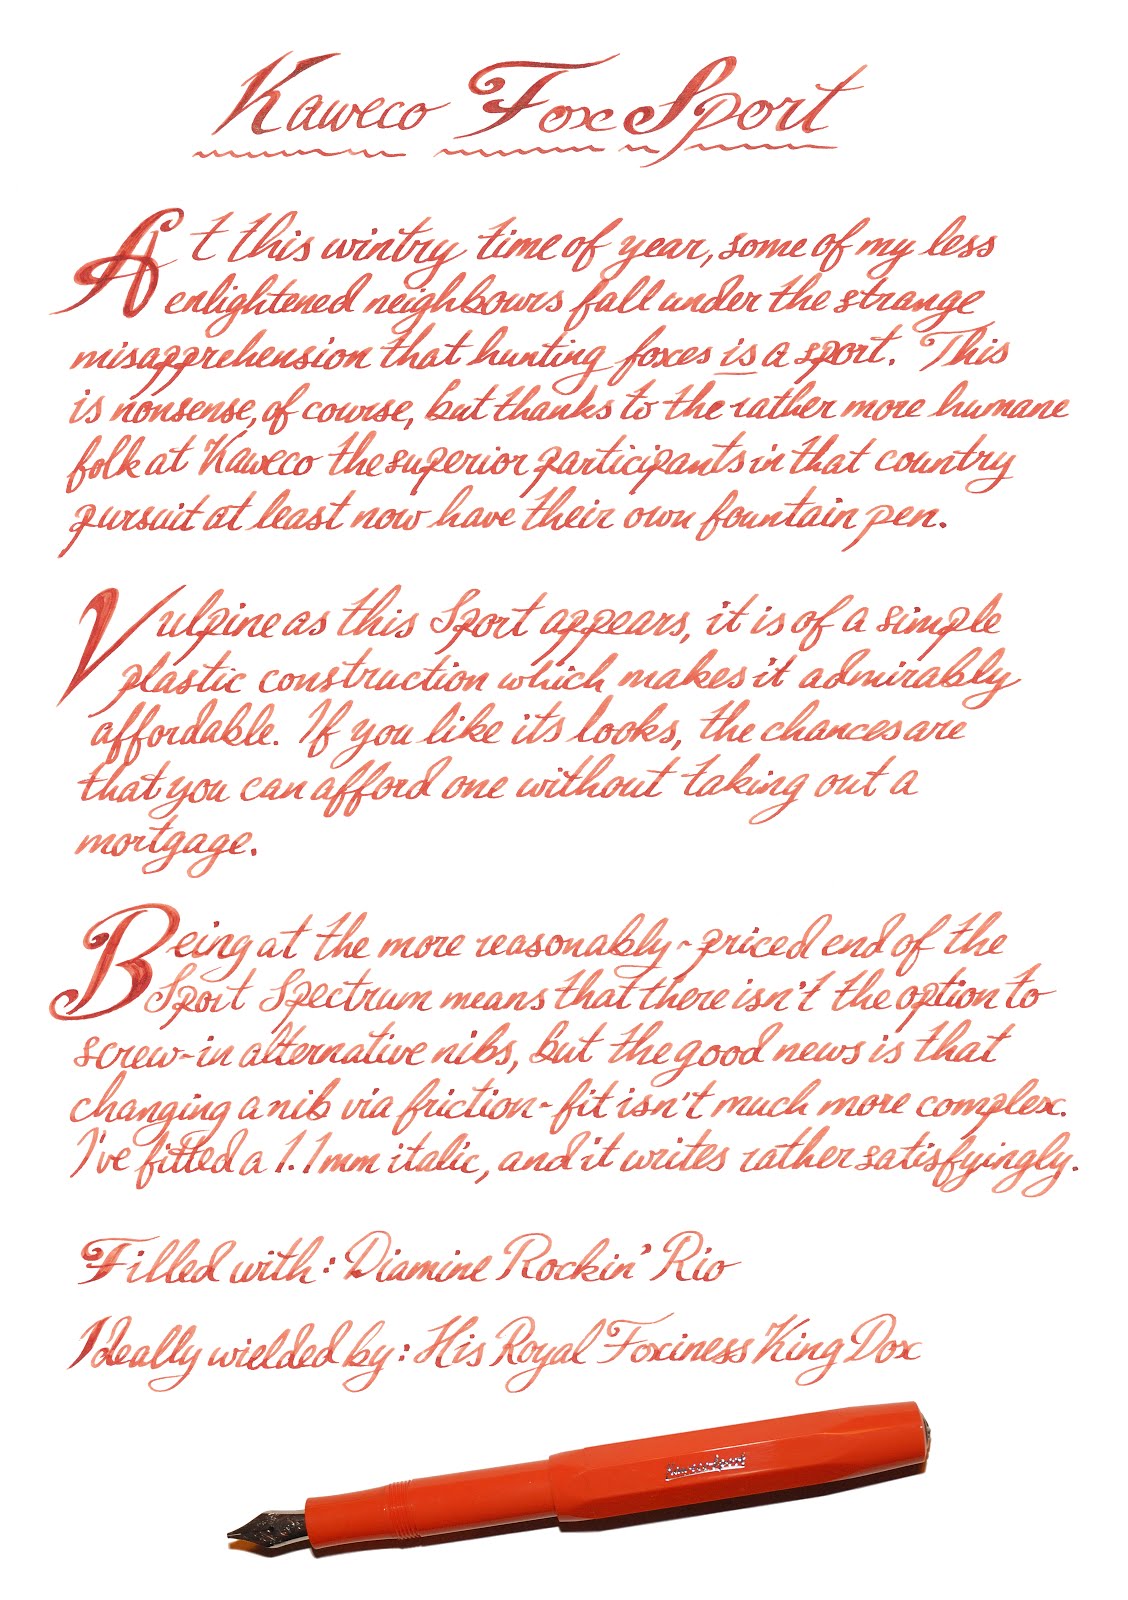 Kaweco Fox Sport
At this wintry time of year, some of my less
enlightened neighbours fall under the strange
misapprehension that hunting foxes is a sport. This
is nonsense, of course, but thanks to the rather more humane
folk at Kaweco the superior participants in that country
pursuit at least now have their own fountain pen.
Vulpine as this Sport appears, it is of a simple
plastic construction which makes it admirably
affordable. If you like its looks, the chances are
that you can afford one without taking out a
mortgage.
Being at the more reasonably-priced end of the
Sport Spectrum means that there isn't the option to
screw-in alternative nibs, but the good news is that
changing a nib via friction-fit isn't much more complex.
I've fitted a 1.1mm italic, and it writes rather satisfyingly.
Filled with: Diamine Rockin' Rio
Ideally wielded by: His Royal Foxiness King Dox
Kaweco Sport